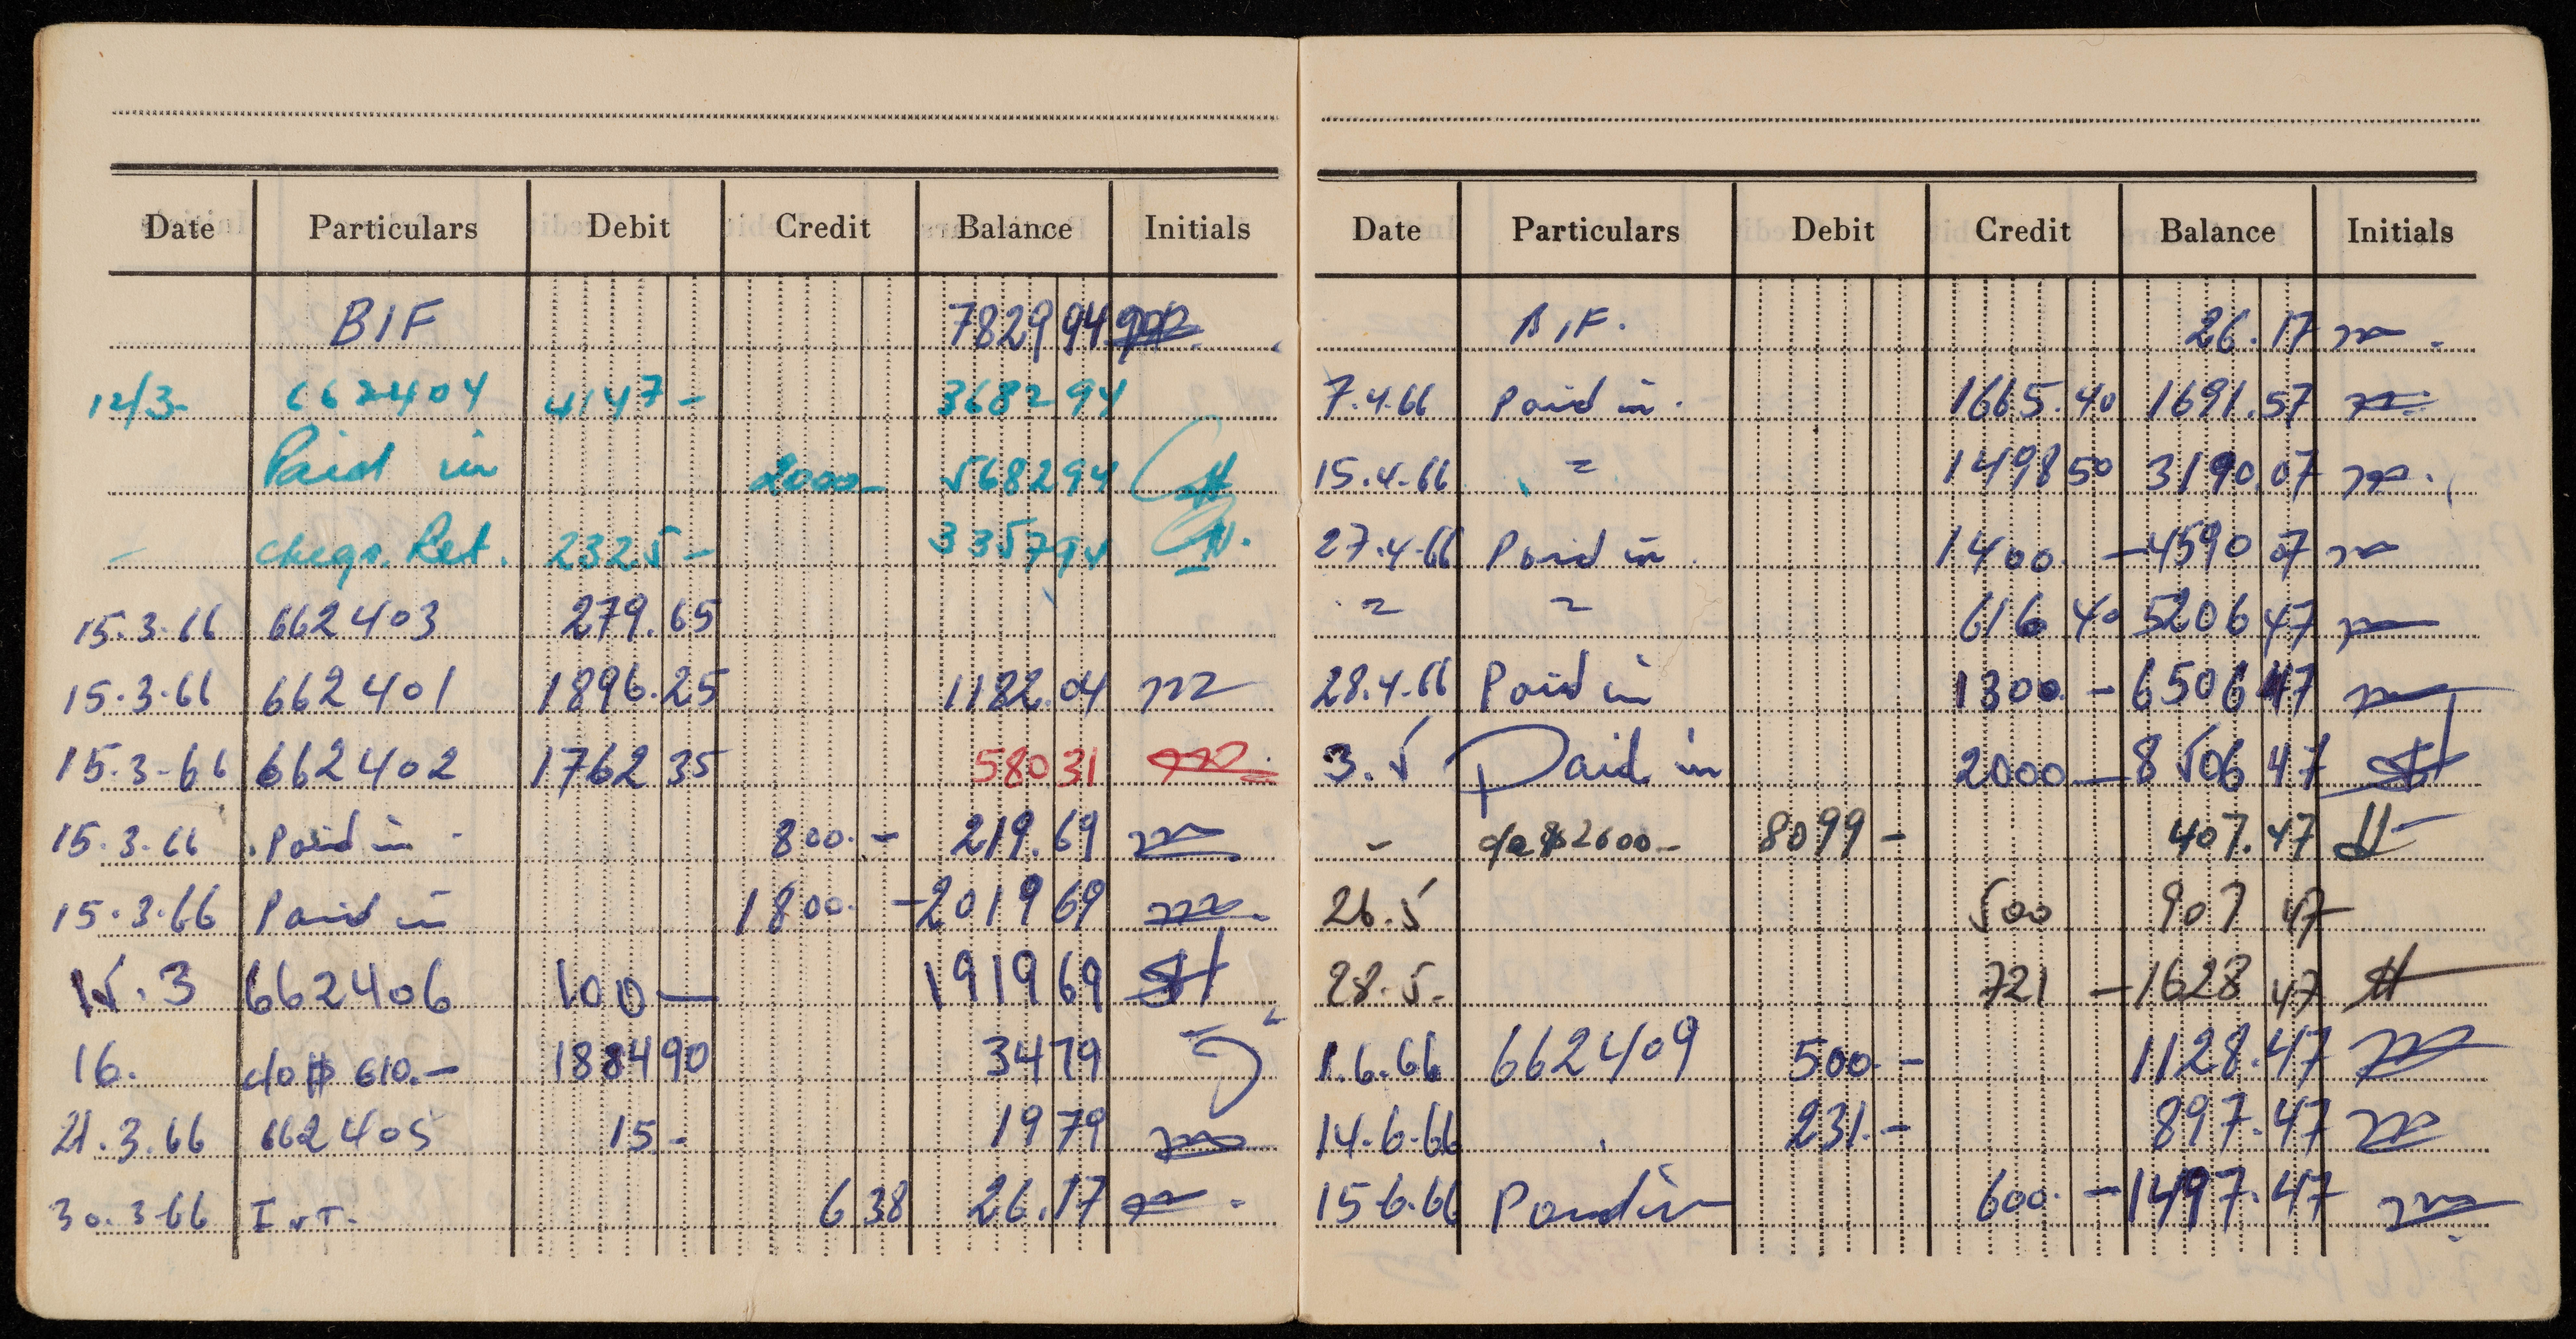 Date Particulars Debit Credit Balance Initials
B/F 7829 94
12/3- 662404 4147- 3682 94
Paid in 2000- 5682 94
- cheqs. Ret. 2325- 3357 94
15.3.66 662403 279.65
15.3.66 662401 1896.25 1182.04
15.3-66 662402 1762 35 580 31
15.3.66 Paid in 800.- 219.69
15.3.66 Paid in 1800.- 2019 69
15.3 662406 100- 1919 69
16. d/o $ 610.- 1884 90 34 79
21.3.66 662405 15- 19 79
30.3-66 INT. 6 38 26.17
Date Particulars Debit Credit Balance Initials
B/F. 26.17
7.4.66 Paid in. 1665.40 1691.57
15.4.66 = 1498 50 3190.07
27.4.66 Paid in. 1400.- 4590 07
= = 616 40 5206 47
28.4.66 Paid in 1300.- 6506 47
3.5 Paid in 2000- 8506 47
- $2600- 8099- 407.47
26.5 500 907 47
28.5- 721- 1628 47
1.6.66 662409 500.- 1128.47
14.6.66 231.- 897.47
15.6.66 Paid in 600.- 1497.47